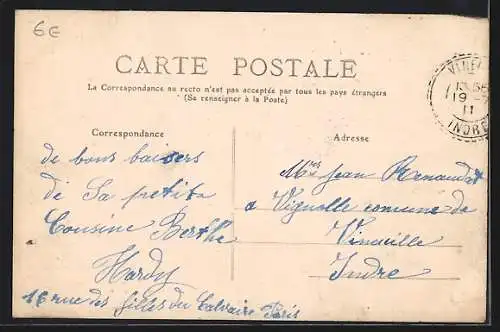 6€
CARTE POSTALE
La Correspondance au recto n'est pas acceptée par tous les pays étrangers
(Se renseigner à la Poste)
Correspondance
Adresse
de bons baisers
de Sa petite
Cousine Berthe
Hardy
16 rue des filles du Calvaire Paris
Jean Renaudat
a Vignolle comune de
Vineuille
Indre
19
11
INDRE